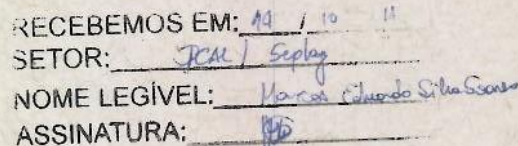 RECEBEMOS EM: 19 / 10 11
SETOR: DCAL / Seplag
NOME LEGÍVEL: Marcos Eduardo Silva Soares
ASSINATURA: